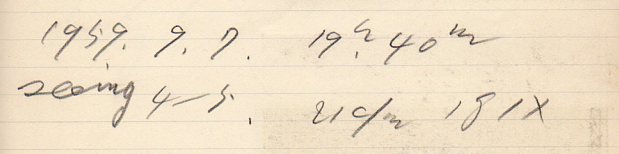 1959. 9. 7. 19h 40m
seeing 4-5. 21cm 181X